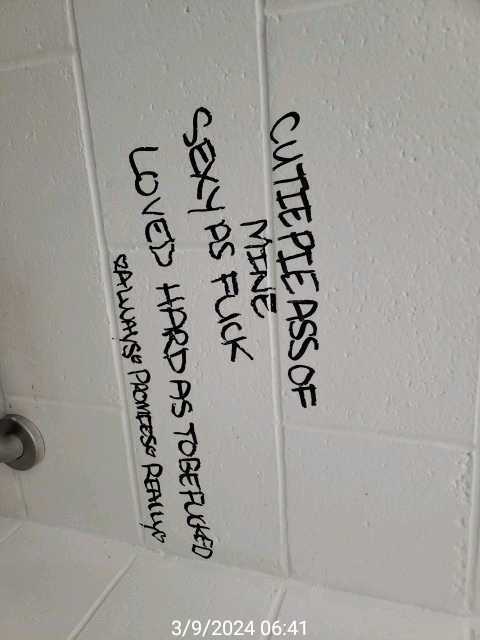 CUTIE PIE ASS OF
MINE
SEXY AS FUCK
LOVED HARD AS TO BE FUCKED
ALWAYS PROMISES REALLY
3/9/2024 06:41